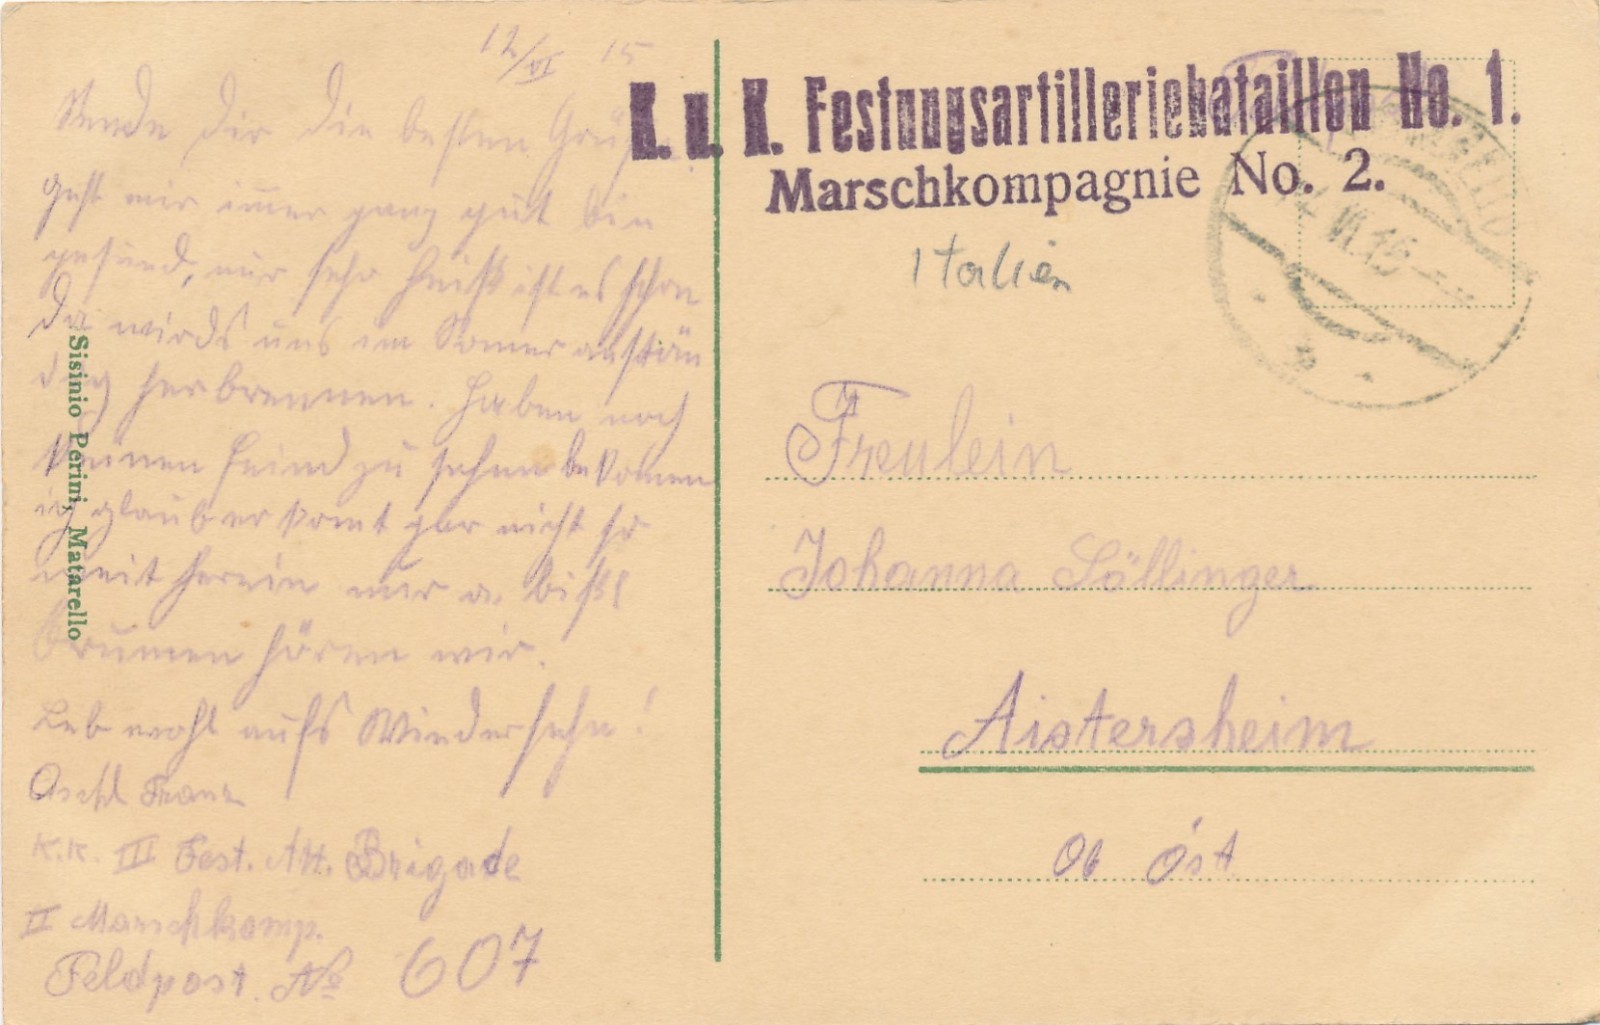 12/VI 15
Sende Dir die besten Grüße
geht mir immer ganz gut bin
gesund, nur sehr heiß ist es schon
da wirds uns im Somer anstän
dig herbrennen. Haben noch
keinen Feind zu sehen bekomen
ich glaub er komt gar nicht so
weit herein nur a bißl
brumen hören wir.
Leb wohl aufs Wiedersehn!
Franz
K.K. III Fest. Art. Brigade
II Marschkomp.
Feldpost. No 607
Sisinio Perini, Matarello
K. u. K. Festungsartilleriebataillon No. 1.
Marschkompagnie No. 2.
Italien
VI.15
Freulein
Johanna Söllinger
Aistersheim
Ob Öst